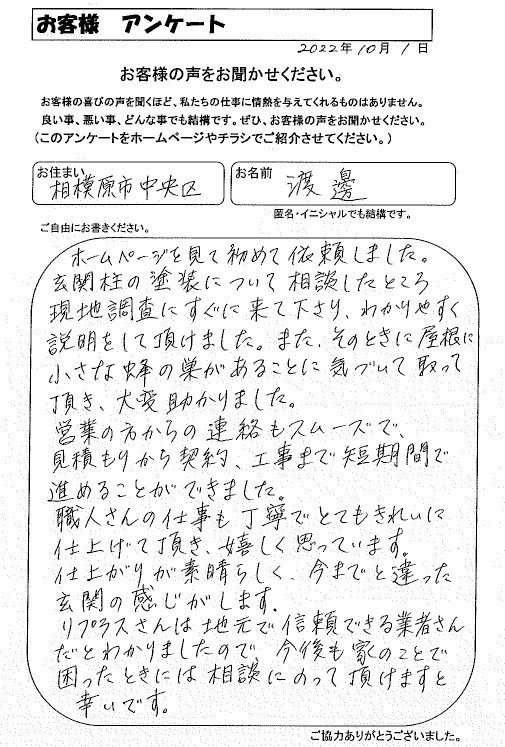 お客様 アンケート
2022年10月1日
お客様の声をお聞かせください。
お客様の喜びの声を聞くほど、私たちの仕事に情熱を与えてくれるものはありません。
良い事、悪い事、どんな事でも結構です。ぜひ、お客様の声をお聞かせください。
(このアンケートをホームページやチラシでご紹介させてください。)
お住まい 相模原市中央区 お名前 渡邊
匿名・イニシャルでも結構です。
ご自由にお書きください。
ホームページを見て初めて依頼しました。
玄関柱の塗装について相談したところ
現地調査にすぐに来て下さり、わかりやすく
説明をして頂けました。また、そのときに屋根に
小さな蜂の巣があることに気づいて取って
頂き、大変助かりました。
営業の方からの連絡もスムーズで、
見積もりから契約、工事まで短期間で
進めることができました。
職人さんの仕事も丁寧でとてもきれいに
仕上げて頂き、嬉しく思っています。
仕上がりが素晴らしく、今までと違った
玄関の感じがします。
リプラスさんは地元で信頼できる業者さん
だとわかりましたので、今後も家のことで
困ったときには相談にのって頂けますと
幸いです。
ご協力ありがとうございました。